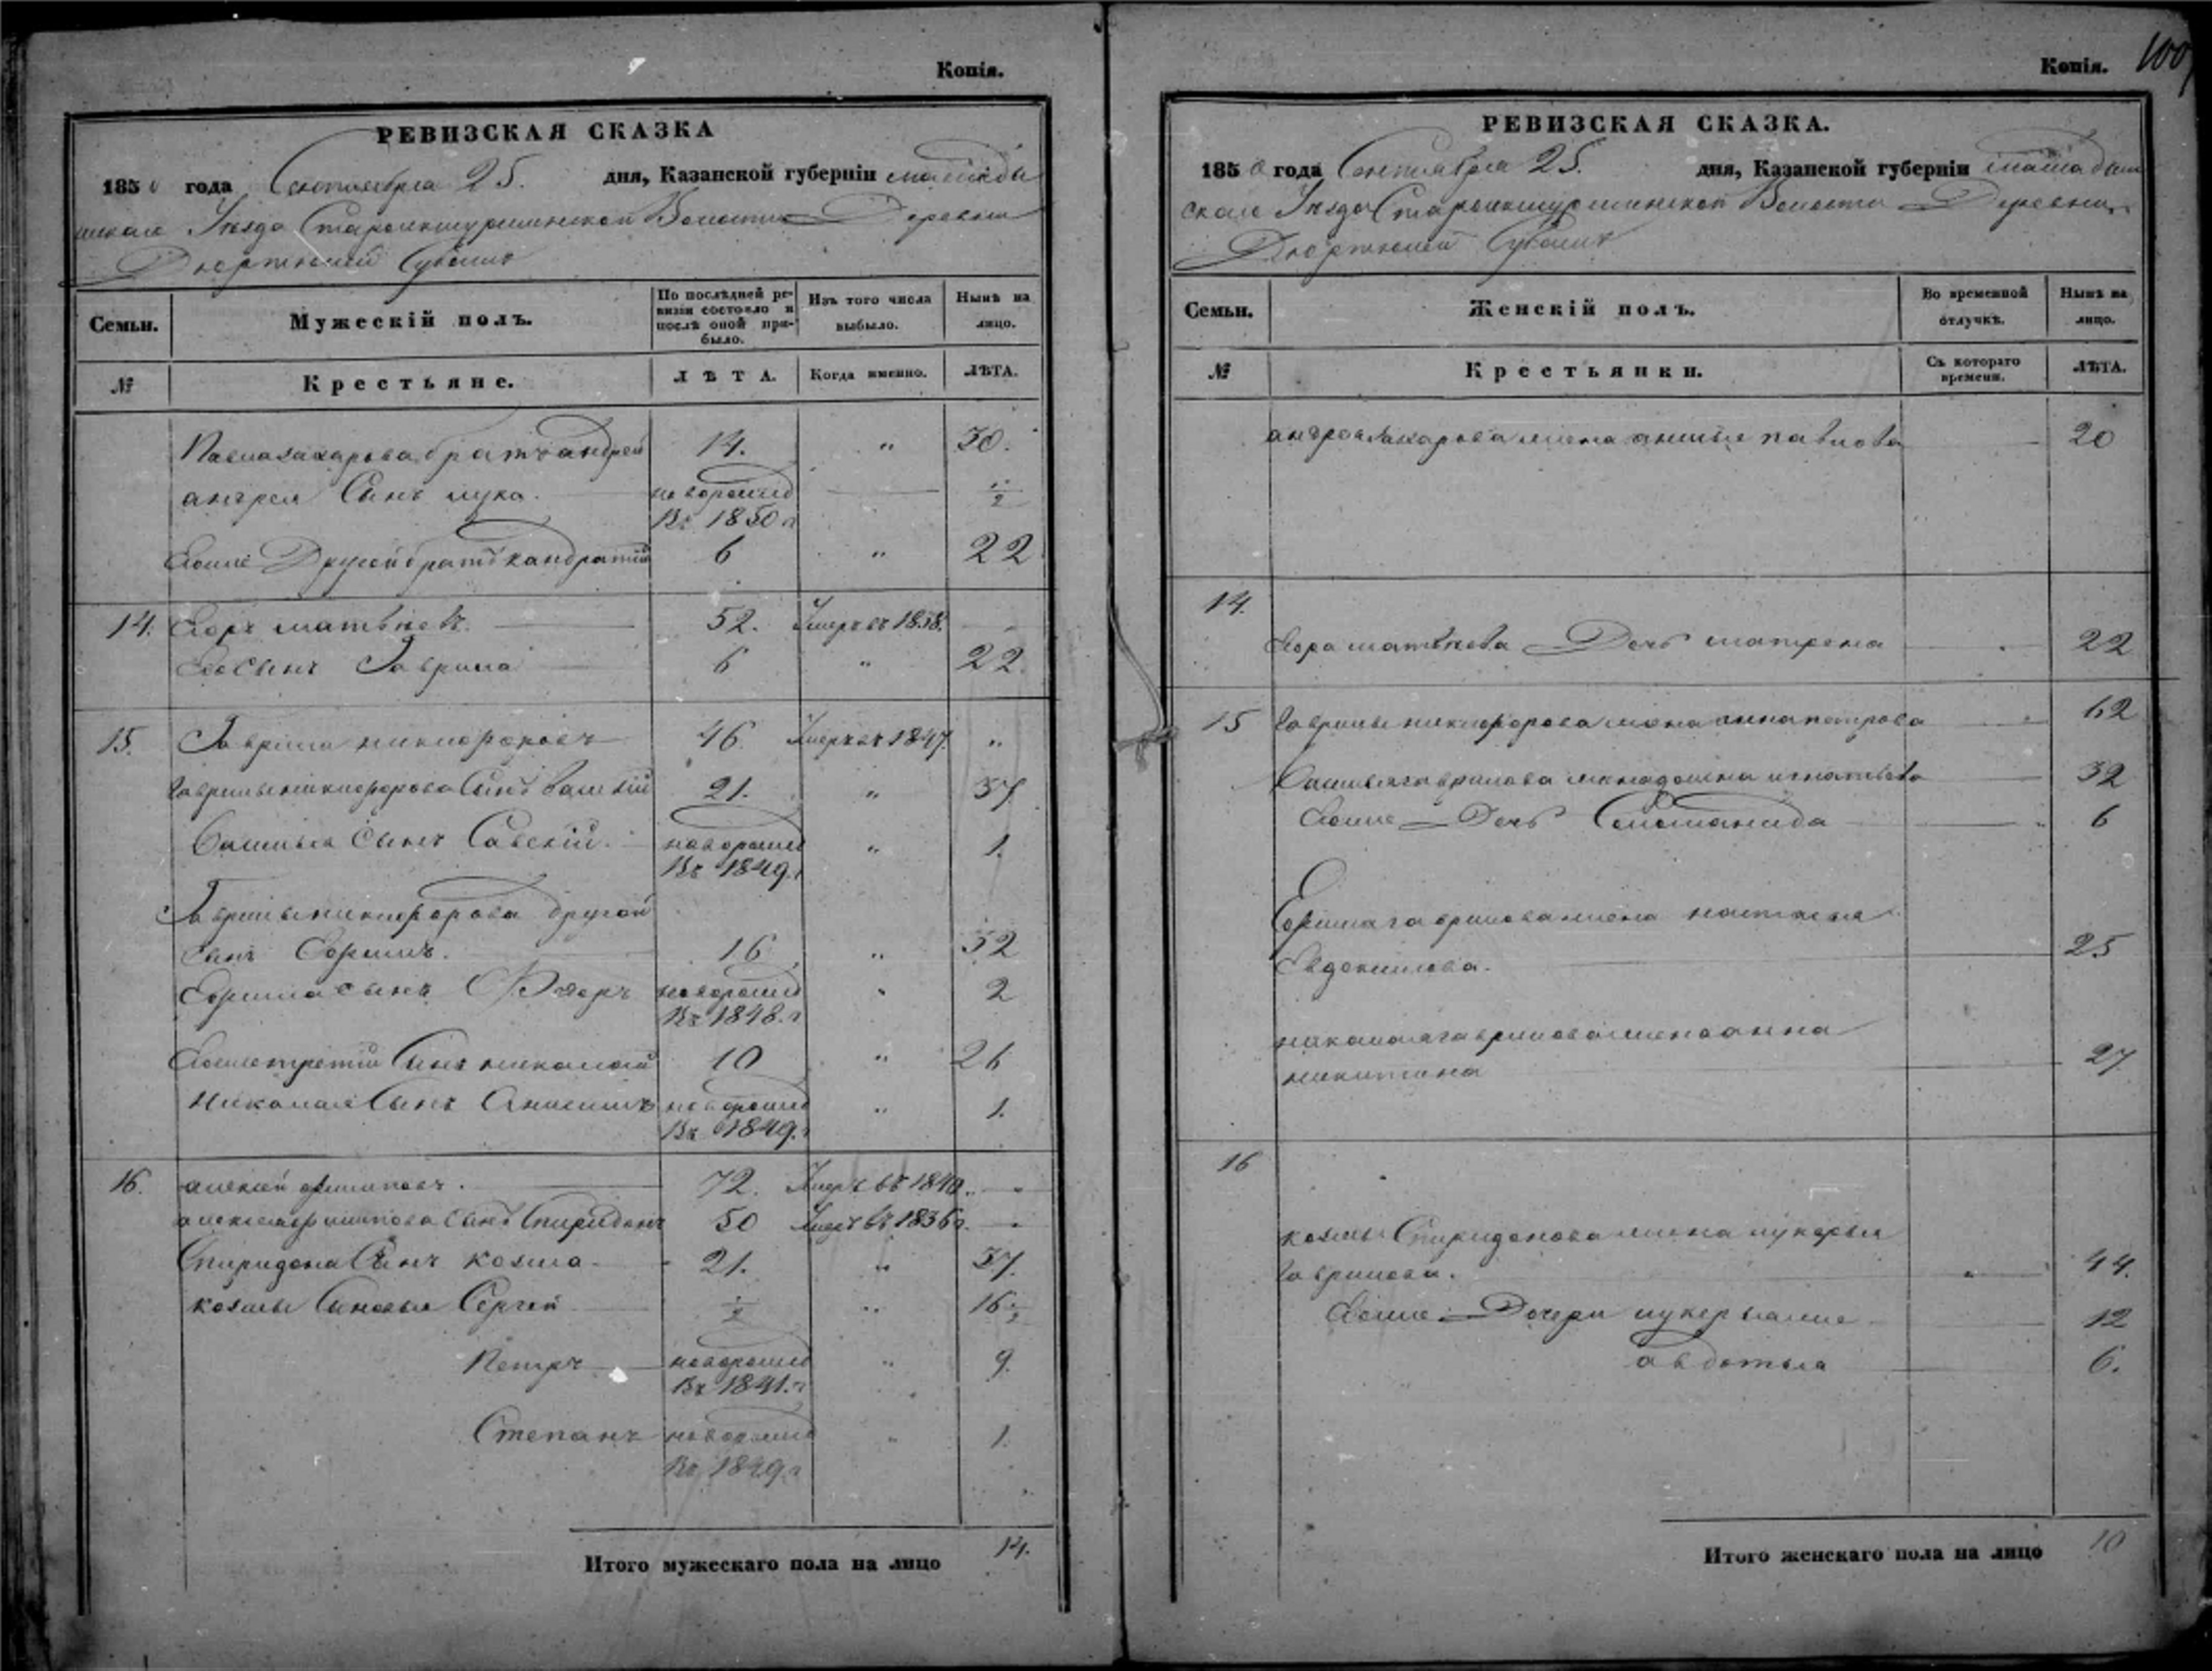 Копія.
РЕВИЗСКАЯ СКАЗКА
1850 года Сентября 25. дня, Казанской губерніи мамады
шскаго Уезда Волости Деревни
Семьи.
Мужескій полъ.
По послѣдней ре-
визіи состояло и
послѣ оной при-
было.
Изъ того числа
выбыло.
Нынѣ на
лицо.
№
Крестьяне.
ЛѢТА.
Когда именно.
ЛѢТА.
Павла захарова братъ андрей 14. " 30.
андрея Сынъ лука. новорожд ½
Въ 1850 г
Евоже Другой братъ кандратий 6 " 22
14. Егоръ матвѣевъ. 52. Умеръ въ 1838.
Его сынъ Гаврила 6 " 22.
15. Гаврила никифоровъ 46. Умеръ въ 1847. "
Гаврилы никифорова Сынъ василий 21. " 37
Василья Сынъ новорожд " 1.
Въ 1849. г
Гаврилы никифорова другой
сынъ Ефримъ. 16 " 32
Ефрима сынъ Федоръ новорожд " 2
Въ 1848. г
Евоже третий Сынъ николай 10 " 26
николая Сынъ Анисимъ новорожд " 1.
Въ 1849. г
16. алексей филиповъ. 72. Умеръ въ 1840.
алексея филипова сынъ Спиридонъ 50 Умеръ въ 1836 г.
Спиридона Сынъ козма 21. " 37.
козмы Сыновья Сергей ½ " 16 ½
Петръ новорожд " 9.
Въ 1841. г
Степанъ новорожд " 1.
Въ 1849. г
Итого мужескаго пола на лицо 14.
Копія. 100
РЕВИЗСКАЯ СКАЗКА.
1850 года Сентября 25. дня, Казанской губерніи мамадыш
скаго Уезда Волости Деревни
Семьи.
Женскій полъ.
Во временной
отлучкѣ.
Нынѣ на
лицо.
№
Крестьянки.
Съ котораго
времени.
ЛѢТА.
андрея Захарова жена павлова 20
14.
Егора матвѣева Дочь матрена 22
15 Гаврилы никифорова жена анна петрова 62
Василья гаврилова жена домна игнатьева 32
Евоже Дочь Соломанида 6
Ефрима гаврилова жена наталья
Евдокимова. 25
николая гаврилова жена анна
никитина 27
16
козмы Спиридонова жена лукерья
Гаврилова. 44.
Евоже Дочери лукерья 12
авдотья 6.
Итого женскаго пола на лицо 10